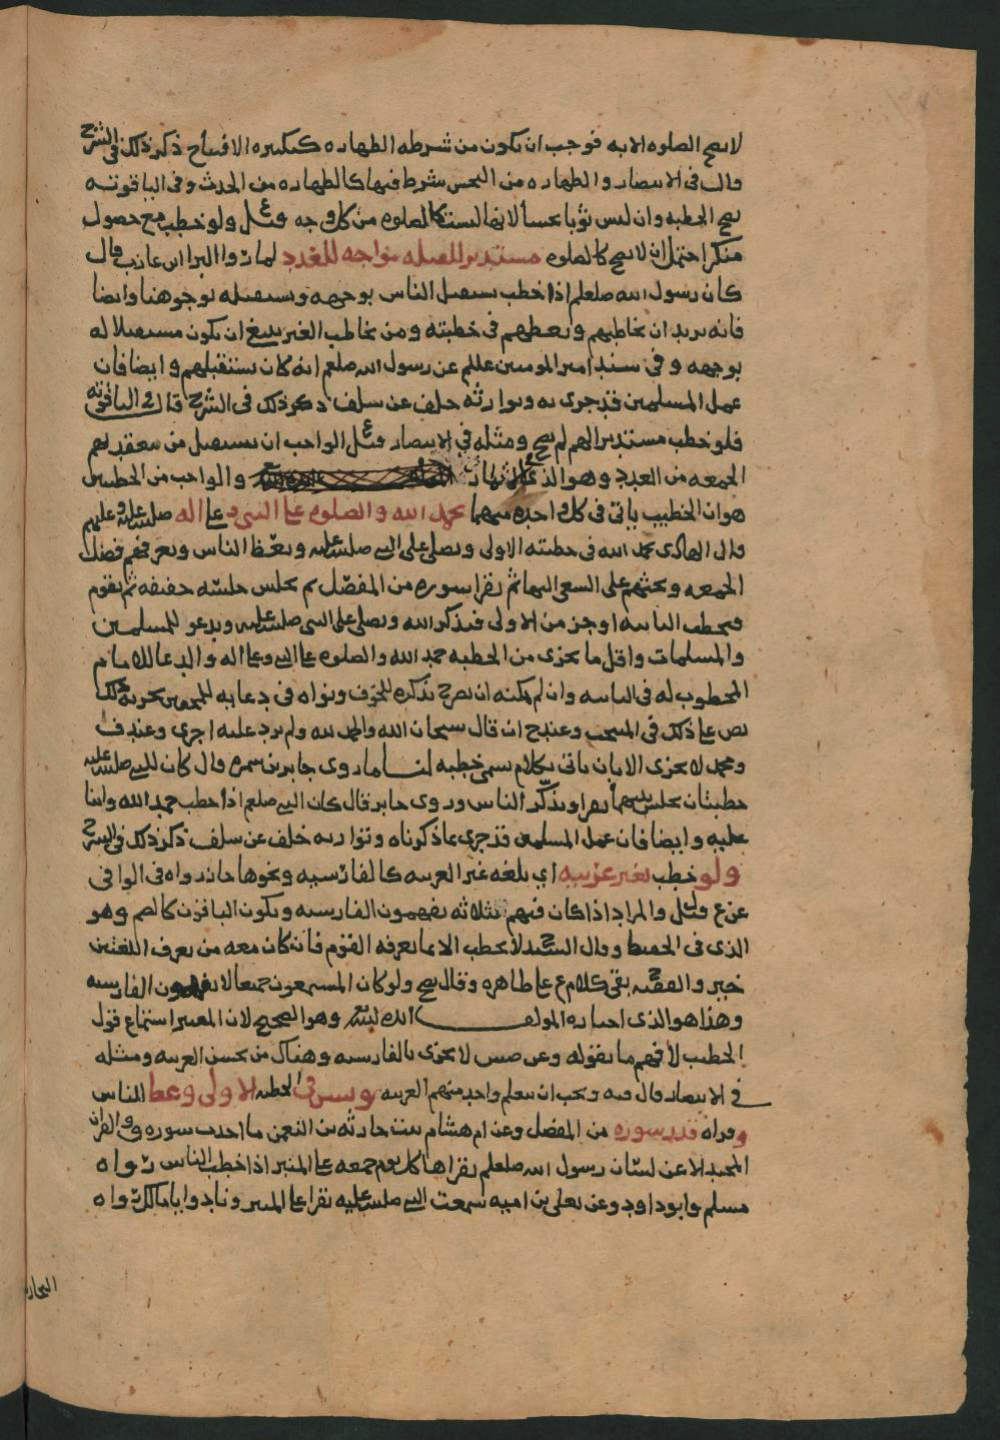 لا تصح الصلوة الا به فوجب ان يكون من شرطه الطهارة كتكبيرة الافتتاح ذكر ذلك في الشرح
قال في الانتصار والطهارة من النجس شرط فيها كالطهارة من الحدث وفي الياقوتة
تصح الخطبة وان لبس ثوبا نجسا لانها ليست كالصلوة من كل وجه قيل ع ولو خطب مع حصول
منكر احتمل ان لا تصح كالصلوة مستدبر للقبلة مواجه للعدد لما روا البرا ابن عازب قال
كان رسول الله صلعم اذا خطب يستقبل الناس بوجهه ونستقبله بوجوهنا وايضا
فانه يريد ان يخاطبهم ويعظهم في خطبته ومن يخاطب الغير ينبغي ان يكون مستقبلا له
بوجهه وفي سند امير المومنين عللم عن رسول الله صلعم انه كان يستقبلهم وايضا فان
عمل المسلمين قد جرى به وتوارثه خلف عن سلف ذكر ذلك في الشرح قال في الياقوتة
فلو خطب مستدبرا لهم لم تصح ومثله في الانتصار قيل ع الواجب ان يستقبل من تنعقد بهم
الجمعة من العدد وهو الذي والواجب من الخطبتين
هو ان الخطيب ياتي في كل واحدة منهما بحمد الله والصلوة على النبي وعلى اله صلى الله عليه وعليهم
قال الهادي يحمد الله في خطبته الاولى ويصلي على النبي صلى الله عليه ويعظ الناس ويعرفهم فضل
الجمعة ويحثهم على السعي اليها ثم يقرا سورة من المفصل ثم يجلس جلسة خفيفة ثم يقوم
فيخطب الثانية اوجز من الاولى فيذكر الله ويصلي على النبي صلى الله عليه ويدعو للمسلمين
والمسلمات واقل ما يجزى من الخطبة حمد الله والصلوة على النبي وعلى اله والدعا للامام
المخطوب له في الثانية وان لم يمكنه ان يصرح بذكره للخوف ونواه في دعايه للمحقين يجزيه ذلك
نص على ذلك في المنتخب وعند ح ان قال سبحان الله والحمد لله ولم يزد عليه اجزى وعند ف
ومحمد لا يجزى الا بان ياتي بكلام يسمى خطبة لنا ما روى جابر بن سمرة قال كان للنبي صلى الله عليه
خطبتان يجلس بينهما يقرا ويذكر الناس وروى جابر قال كان النبي صلعم اذا خطب حمد الله واثنا
عليه وايضا فان عمل المسلمين قد جرى بما ذكرناه وتوارثه خلف عن سلف ذكر ذلك في الشرح
ولو خطب بغير عربية اي بلغة غير العربية كالفارسية ونحوها جاز رواه في الوافي
عن ع قيل ل والمراد اذا كان فيهم ثلاثة يفهمون الفارسية ويكون الباقون كالصم وهو
الذي في الحفيظ وقال السيد ح لا يخطب الا بما يعرفه القوم فان كان معه من يعرف اللغتين
خير والفقيه ح بقى كلام ع على ظاهره وقال تصح ولو كان المستمعون جميعا لا يفهمون الفارسية
وهذا هو الذي اختاره المولف ايده الله تعالى وهو الصحيح لان المعتبر استماع قول
الخطيب لا فهم ما يقوله وعن لا يجزى بالفارسية وهناك من يحسن العربية ومثله
في الانتصار قال فيه ويجب ان يتعلم واحد منهم العربية وسن في الخطبة الاولى وعظ الناس
وقراة قدر سورة من المفصل وعن ام هشام بنت حارثة بن النعمن ما اخذت سورة ق والقران
المجيد الا عن لسان رسول الله صلعلم يقراها كل يوم جمعة على المنبر اذا خطب الناس رواه
مسلم وابو داود وعن يعلى بن امية سمعت النبي صلى الله عليه يقرا على المنبر ونادوا يا مالك رواه
البخاري